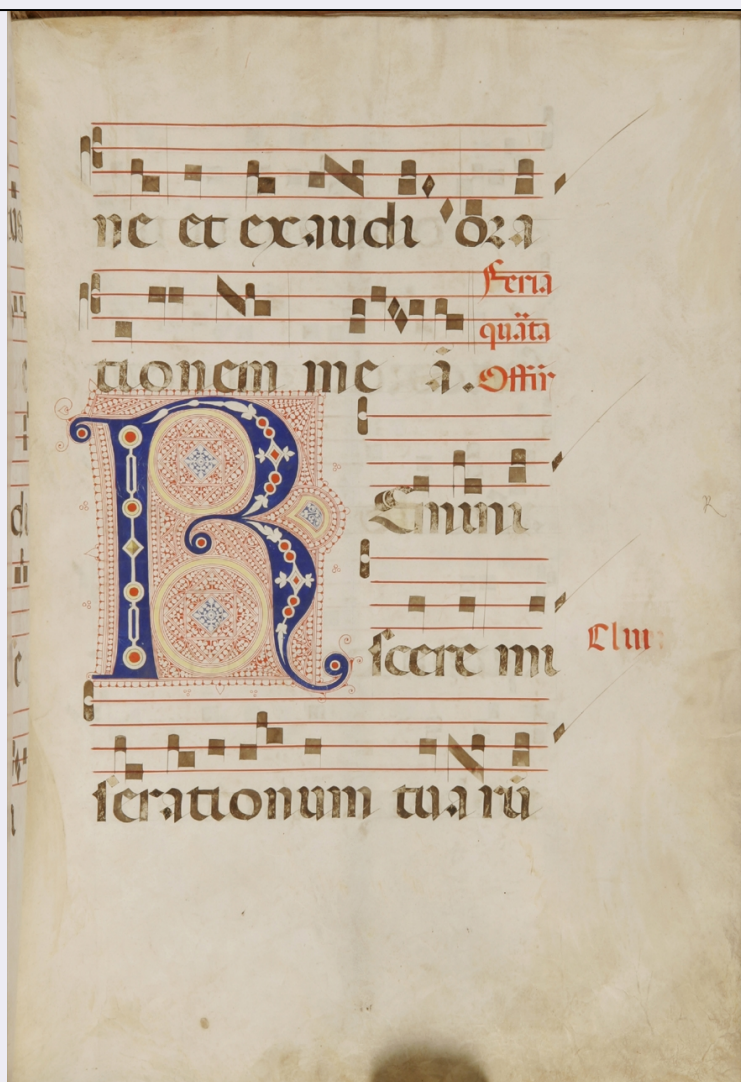 ne et exaudi ora
Feria
quãta
tionem me a. Offir
REmini
scere mi
Clun
serationum tuarũ